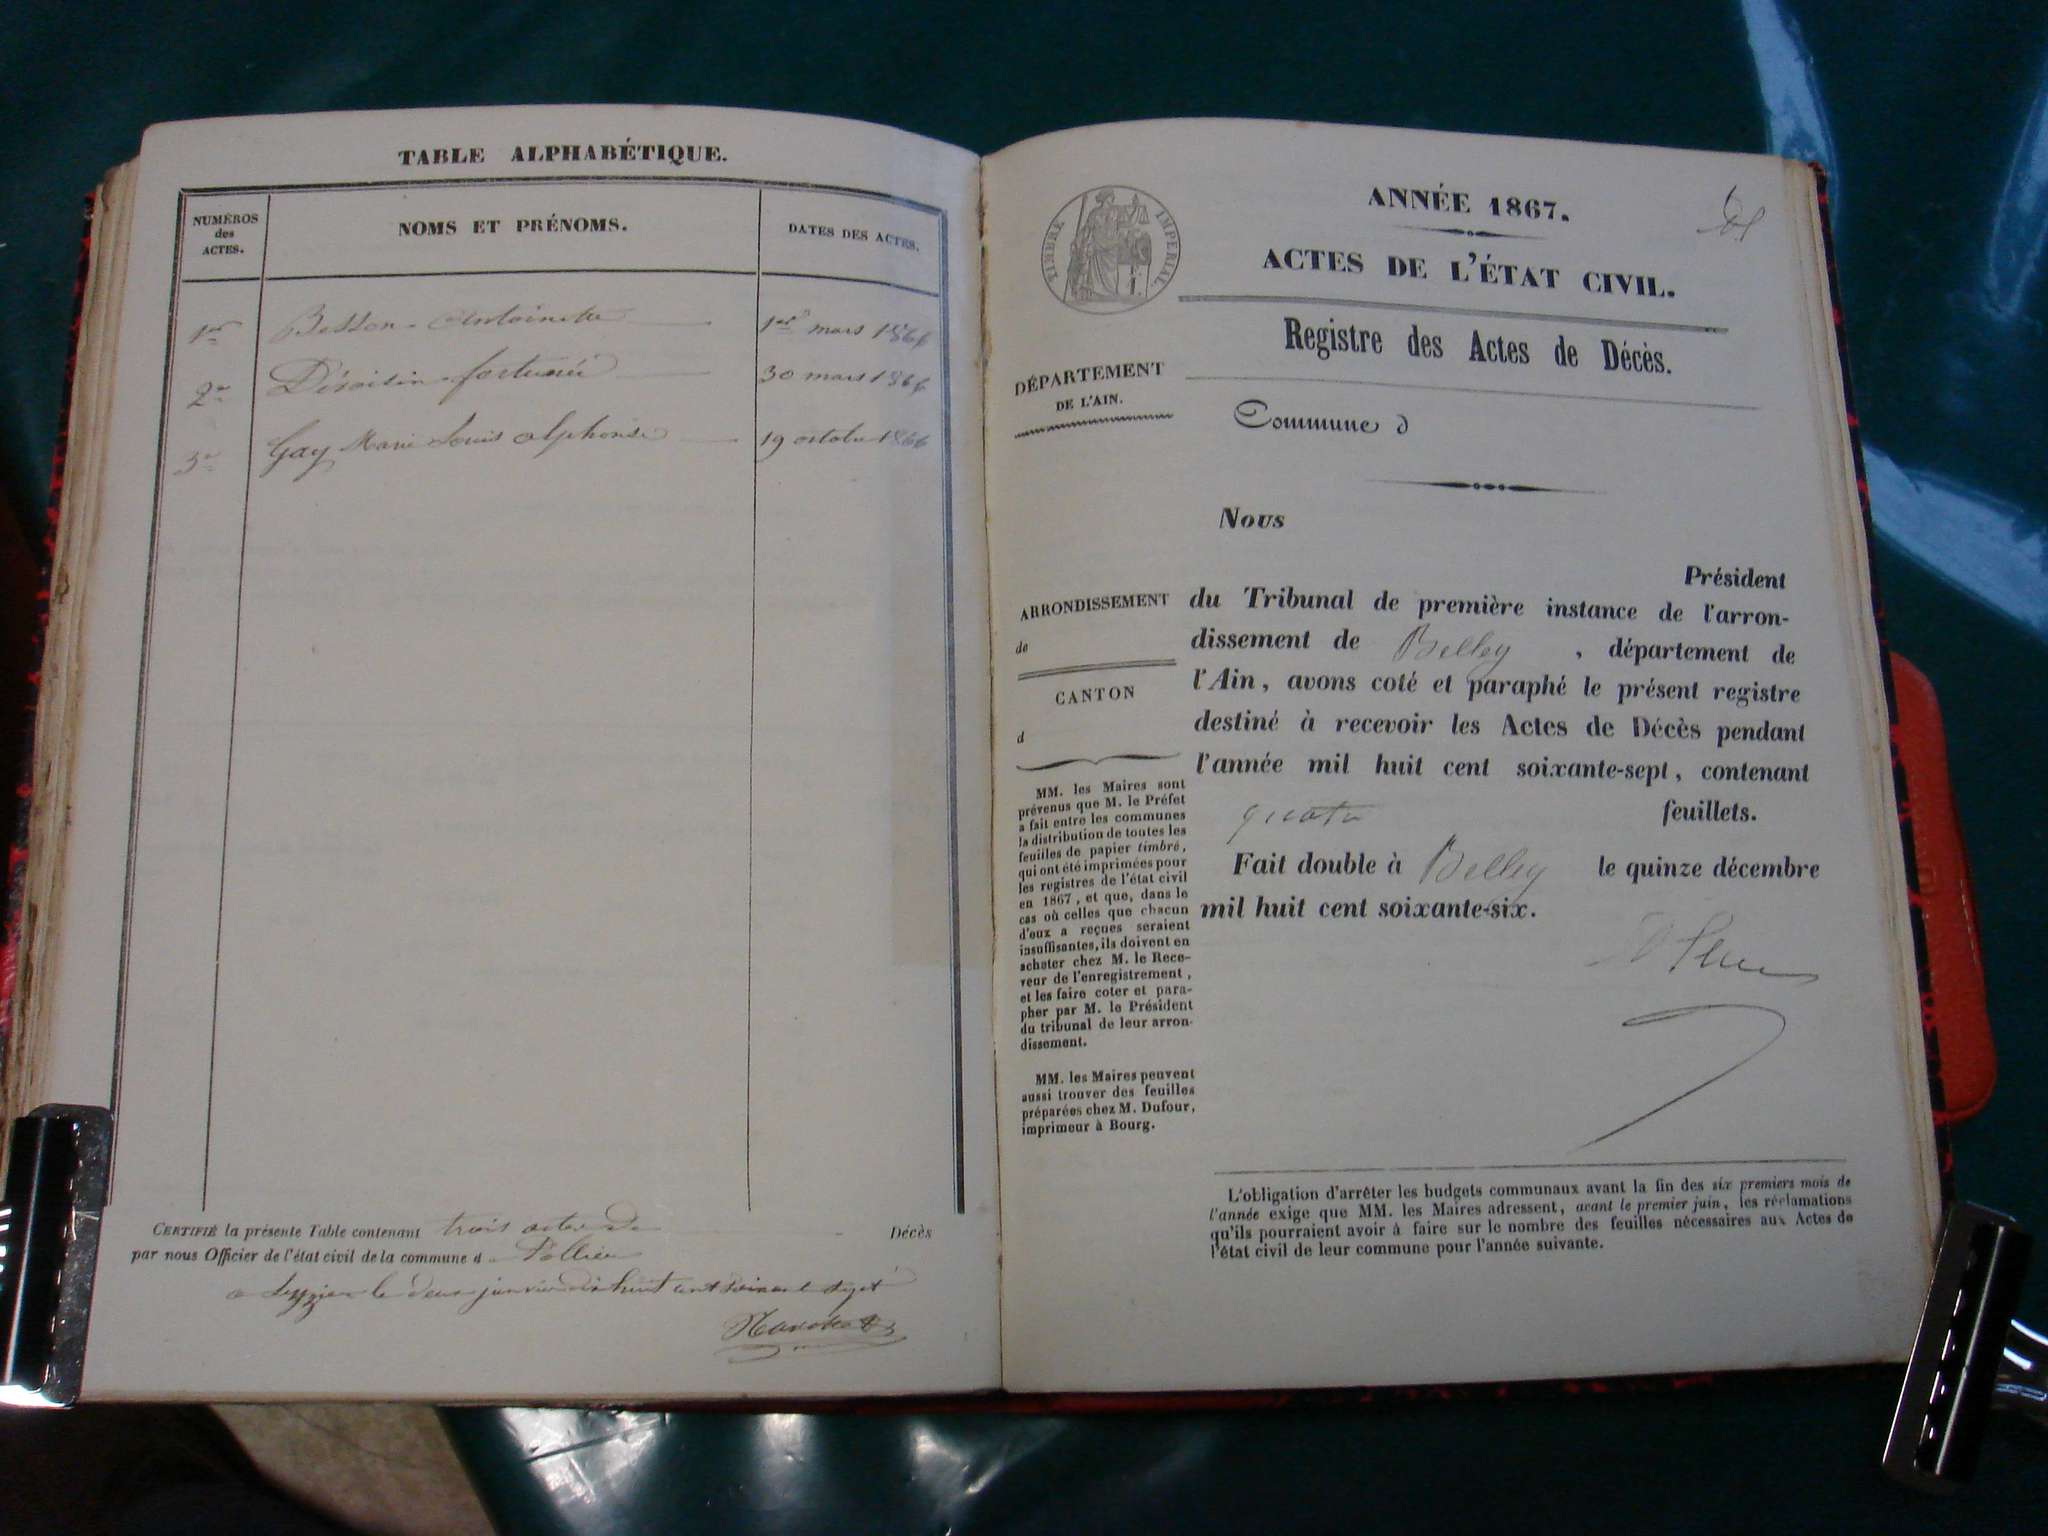 TABLE ALPHABÉTIQUE.
NUMÉROS des ACTES.
NOMS ET PRÉNOMS.
DATES DES ACTES.
1er Besson Antoinette 1er mars 1866
2e fortuné 30 mars 1866
3e Gay Marie Louis alphonse 19 octobre 1866
CERTIFIÉ la présente Table contenant trois actes de Décès
par nous Officier de l'état civil de la commune d Pollieu
a le deux janvier dix huit cent soixante sept
TIMBRE IMPERIAL
ANNÉE 1867.
ACTES DE L'ÉTAT CIVIL.
Registre des Actes de Décès.
DÉPARTEMENT
DE L'AIN.
Commune d
Nous
Président
du Tribunal de première instance de l'arron-
dissement de Belley , département de
l'Ain, avons coté et paraphé le présent registre
destiné à recevoir les Actes de Décès pendant
l'année mil huit cent soixante-sept, contenant
quatre feuillets.
Fait double à Belley le quinze décembre
mil huit cent soixante-six.
ARRONDISSEMENT
de
CANTON
d
MM. les Maires sont
prévenus que M. le Préfet
a fait entre les communes
la distribution de toutes les
feuilles de papier timbré,
qui ont été imprimées pour
les registres de l'état civil
en 1867, et que, dans le
cas où celles que chacun
d'eux a reçues seraient
insuffisantes, ils doivent en
acheter chez M. le Rece-
veur de l'enregistrement,
et les faire coter et para-
pher par M. le Président
du tribunal de leur arron-
dissement.
MM. les Maires peuvent
aussi trouver des feuilles
préparées chez M. Dufour,
imprimeur à Bourg.
L'obligation d'arrêter les budgets communaux avant la fin des six premiers mois de
l'année exige que MM. les Maires adressent, avant le premier juin, les réclamations
qu'ils pourraient avoir à faire sur le nombre des feuilles nécessaires aux Actes de
l'état civil de leur commune pour l'année suivante.